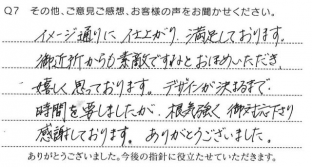 Q7 その他、ご意見ご感想、お客様の声をお聞かせください。
イメージ通りに仕上がり、満足しております。
御近所からも素敵ですねとおほめいただき、
嬉しく思っております。デザインが決まるまで
時間を要しましたが、根気強く御対応下り
感謝しております。ありがとうございました。
ありがとうございました。今後の指針に役立たせていただきます。